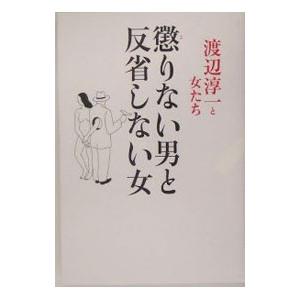 渡辺淳一と
女たち
懲りない男と
反省しない女